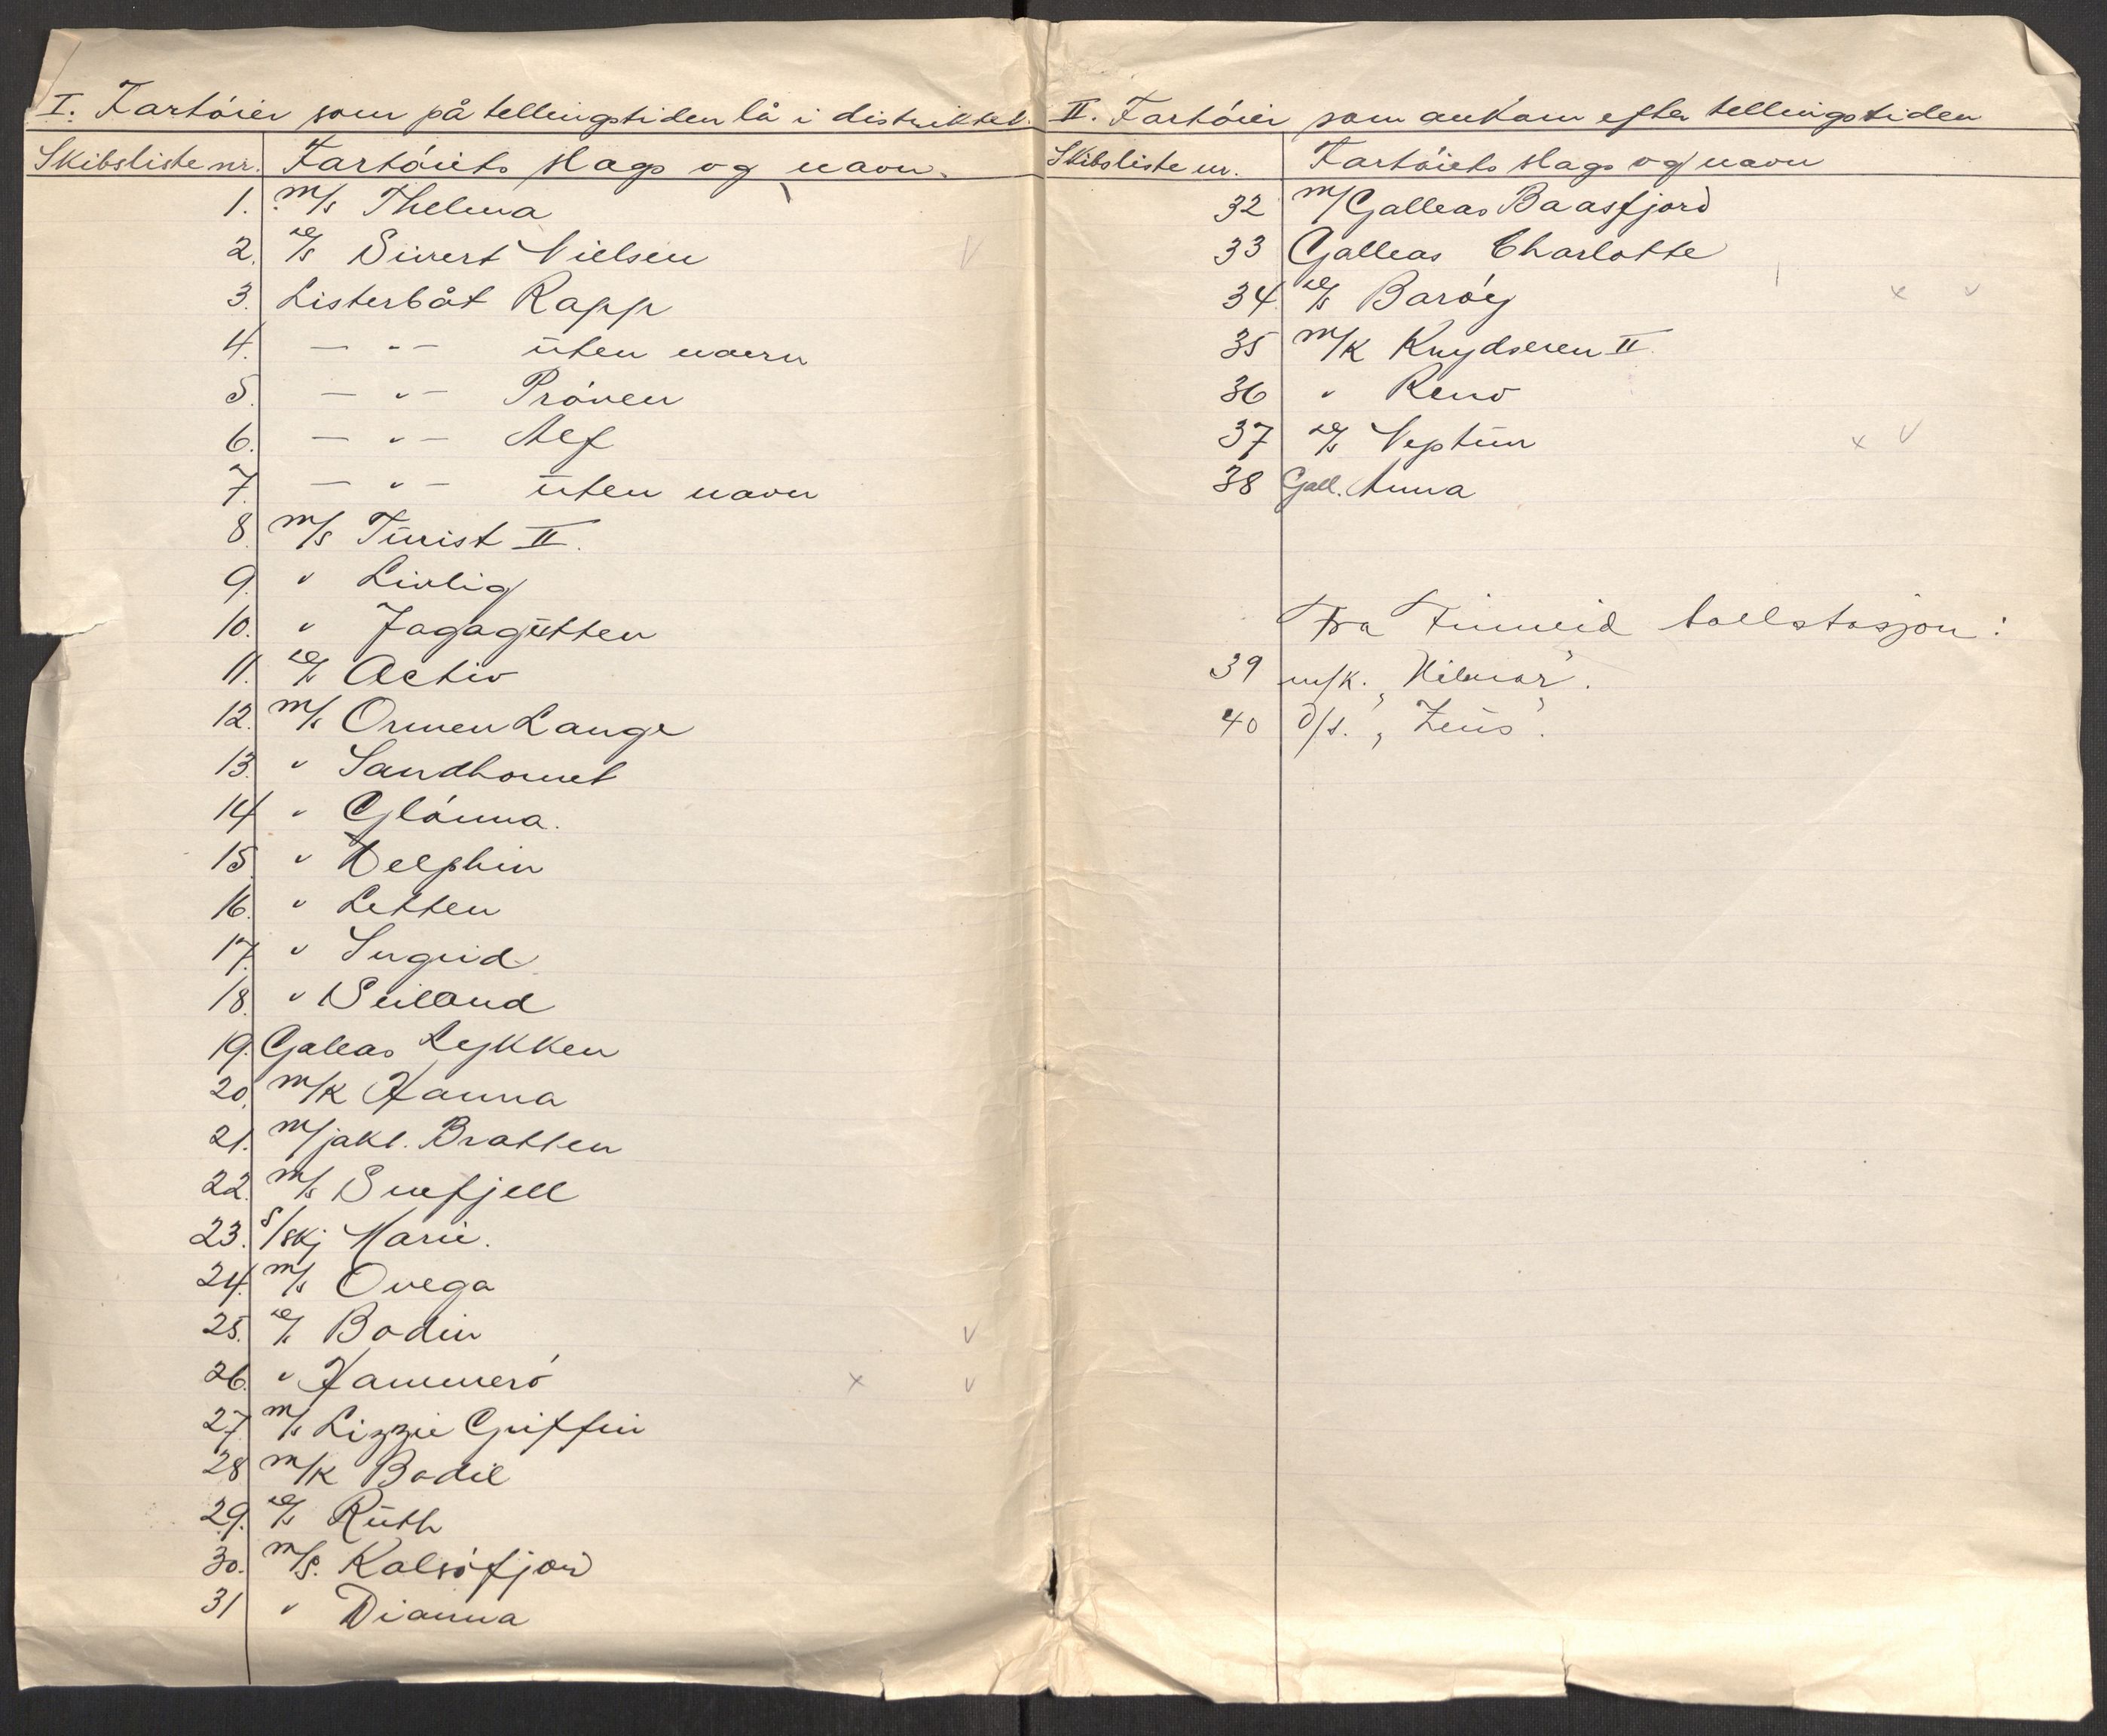 I. Fartøier som på tellingstiden lå i distriktet.
Skibsliste nr. Fartøiets slags og navn.
1. m/s Thelma
2. D/s Sivert Nielsen v
3. Listerbåt Rapp
4. — " — uten navn
5. — " — Prøven
6. — " — Alf
7. — " — uten navn
8. m/s Turist II.
9. " Livlig
10. " Jagagutten
11. D/s Activ
12. m/s Ormen Lange
13. " Sandhornet
14. " Glømma.
15. " Delphin
16. " Letten
17. " Ingrid
18. " Seiland
19. Galeas Lykken
20. m/k Hanna
21. m/jakt. Bratten
22. m/s Snefjell
23. s/skj Marie.
24. m/s Ovega
25. D/s Bodin v
26. " Hammerö x v
27. m/s Lizzie Griffin
28 m/k Bodil
29. D/s Ruth
30. m/s. Kalsöfjord
31 " Dianna
II. Fartøier som ankom efter tellingstiden
Skibsliste nr. Fartøiets slags og navn
32 m/Galleas Baasfjord
33 Galleas Charlotte
34. D/s Barøy x v
35 m/k Knydseren II.
36 " Reno
37 D/s Neptun x v
38 Gall. Anna
Fra Finneid tollstasjon:
39 m/k. „Hilmar".
40 D/s. „Zeus".